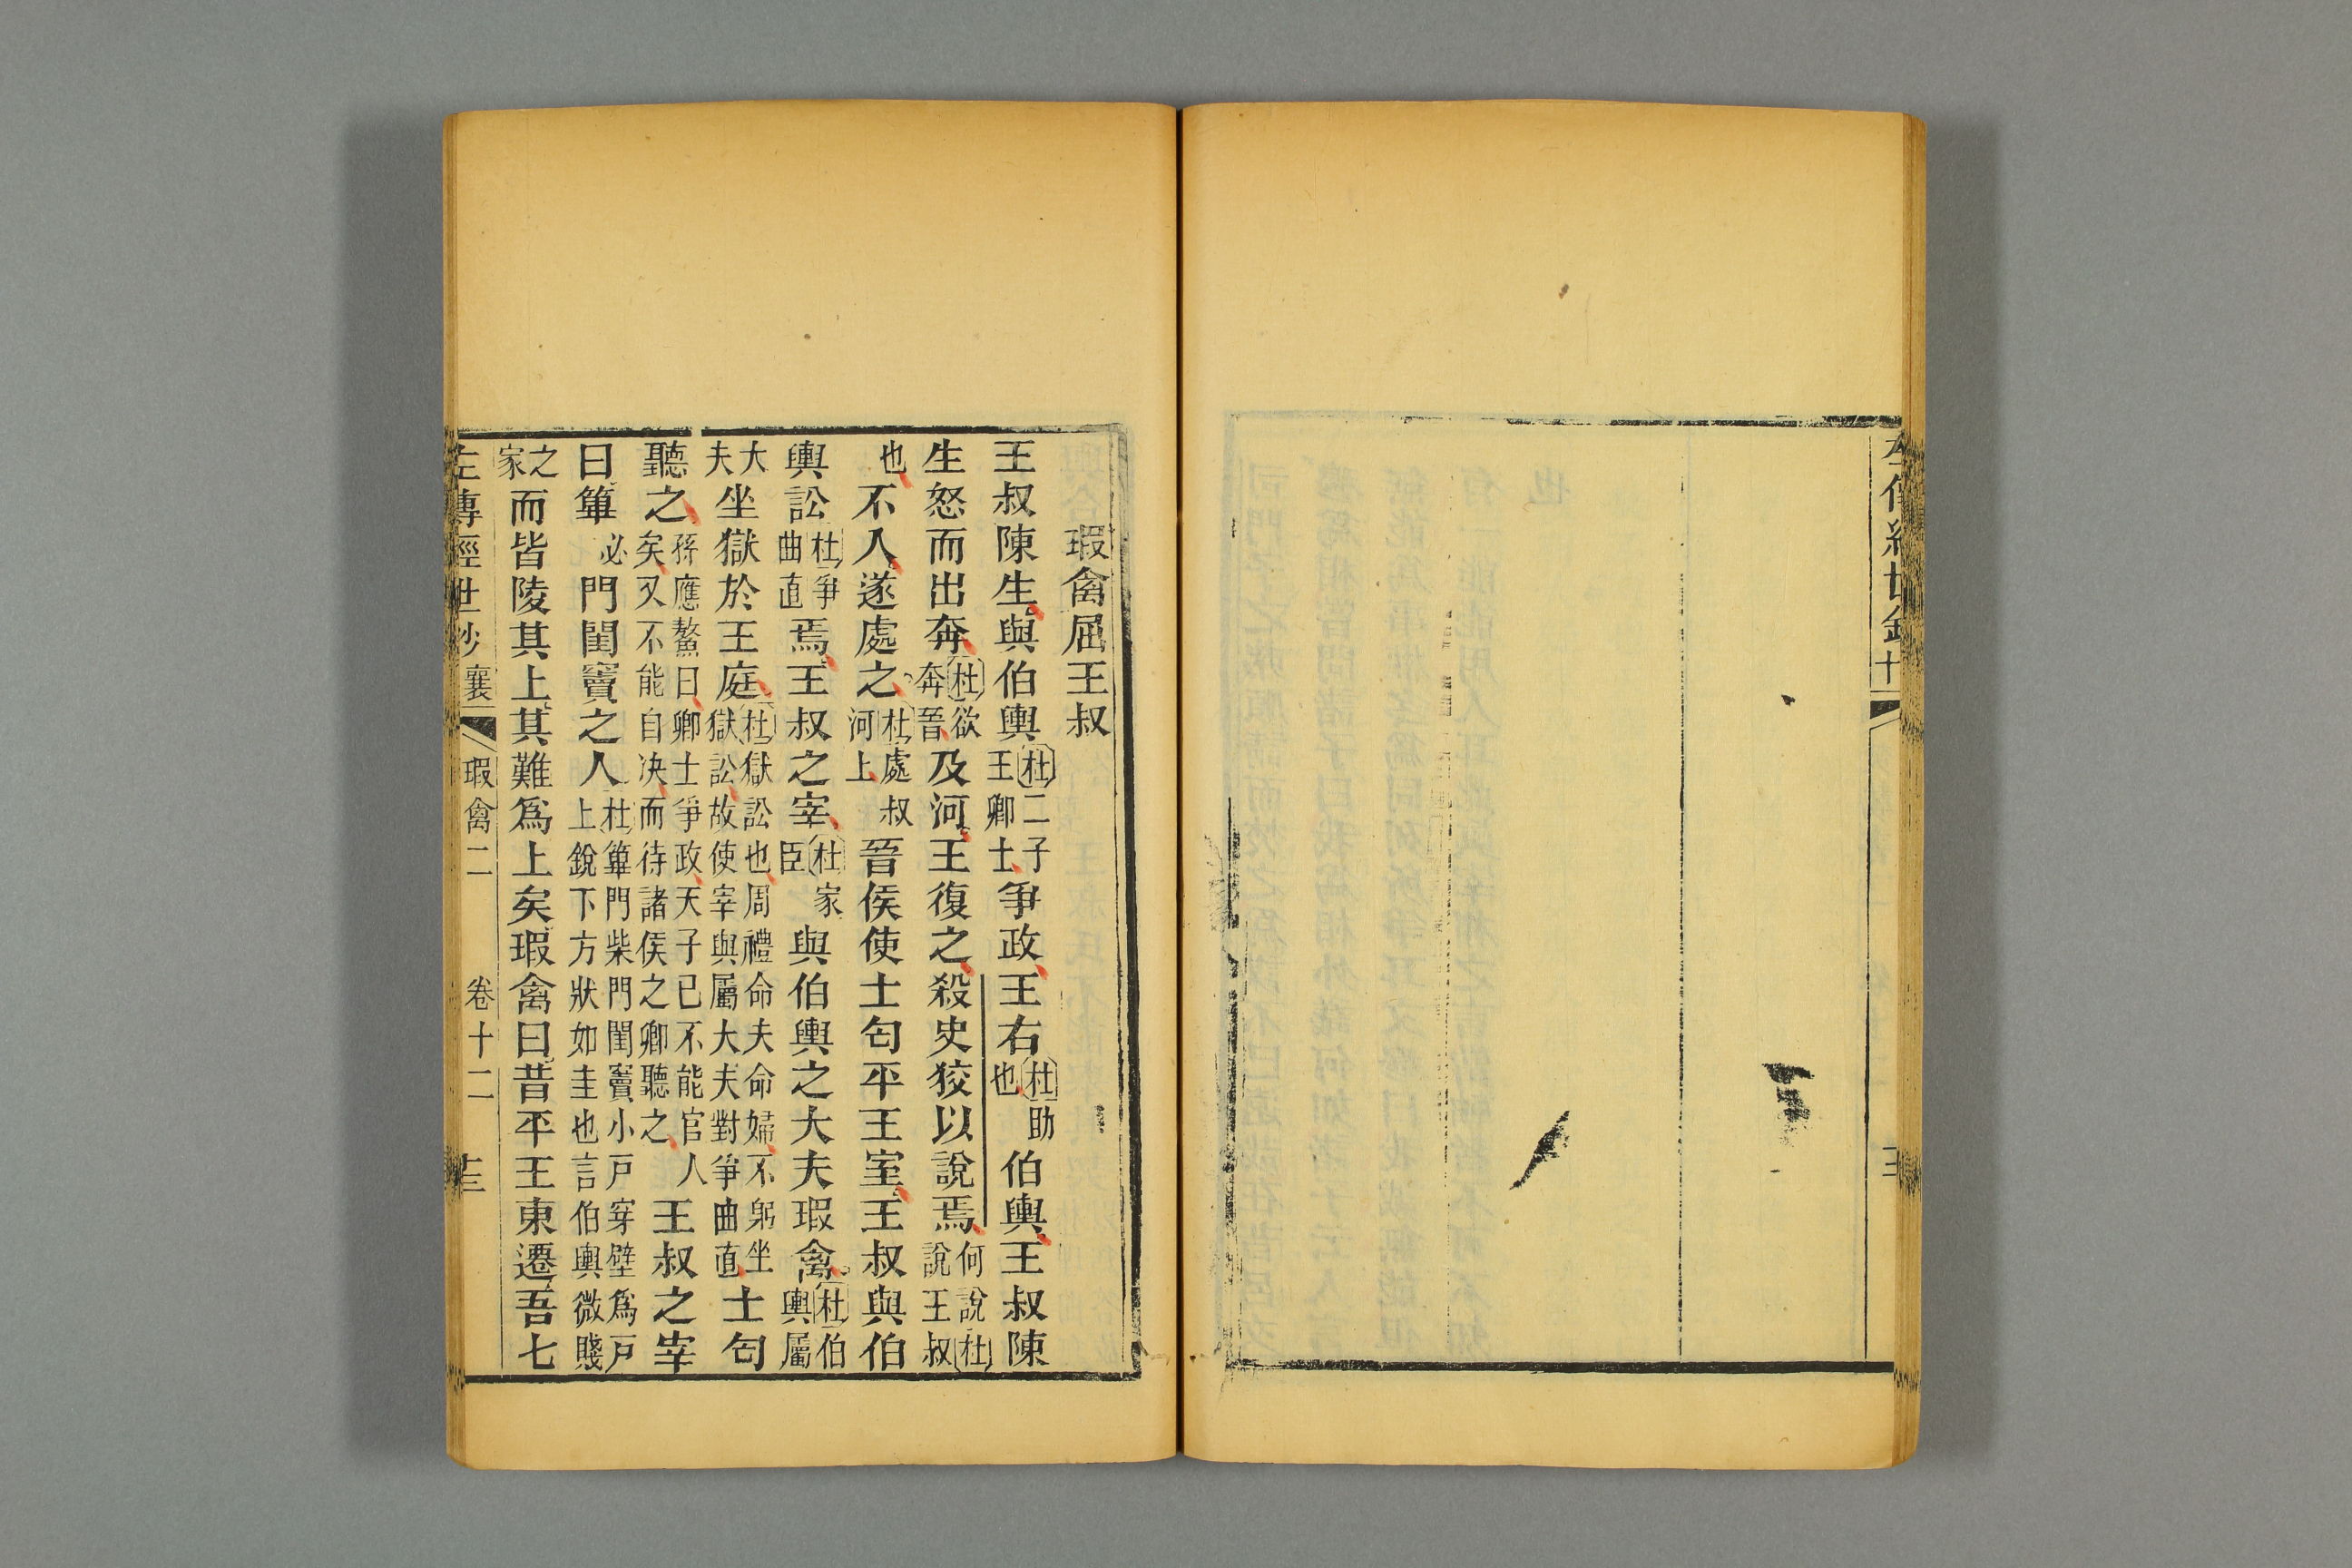 瑕禽屈王叔
王叔陳生與伯輿杜二子王卿士爭政王右杜助也伯輿王叔陳
生怒而出奔杜欲奔晉及河王復之殺史狡以說焉何說杜說王叔
也不入遂處之杜處叔河上晉侯使士匄平王室王叔與伯
輿訟杜爭曲直焉王叔之宰杜家臣與伯輿之大夫瑕禽杜伯輿屬
大夫坐獄於王庭杜獄訟也周禮命夫命婦不躬坐獄訟故使宰與屬大夫對爭曲直士匄
聽之孫應鰲曰卿士爭政天子已不能官人矣又不能自决而待諸侯之卿聽之王叔之宰
曰篳必門閨竇之人杜篳門柴門閨竇小戸穿壁爲戸上銳下方狀如圭也言伯輿微賤
之家而皆陵其上其難爲上矣瑕禽曰昔平王東遷吾七
左傳經世鈔襄 瑕禽二 卷十二